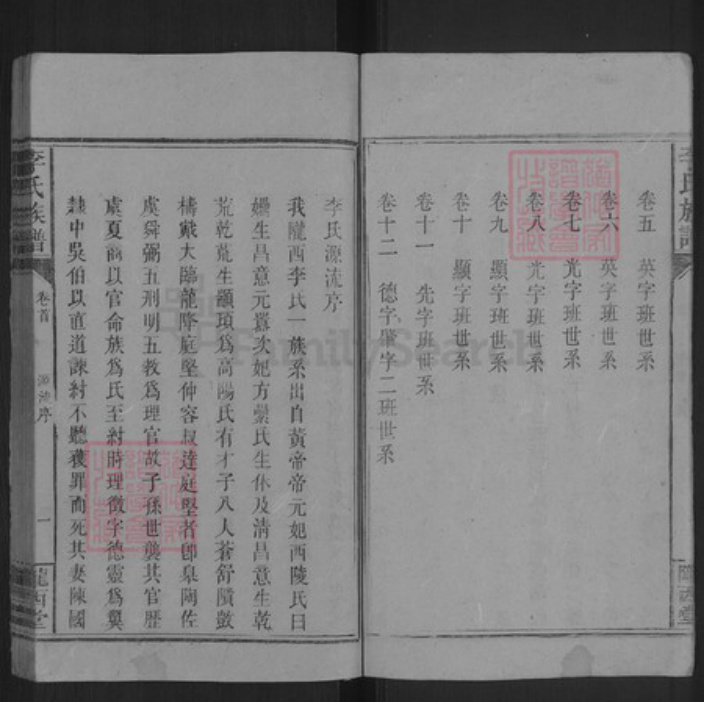 李氏族譜
卷五　英字班世系
卷六　英字班世系
卷七　光字班世系
卷八　光字班世系
卷九　顯字班世系
卷十　顯字班世系
卷十一　先字班世系
卷十二　德字肇字二班世系
隴西堂
李氏源流序
我隴西李氏一族系出自黃帝帝元妃西陵氏曰
嫘生昌意元囂次妃方纍氏生休及清昌意生乾
荒乾荒生顓頊爲高陽氏有才子八人蒼舒隤敱
檮戭大臨龍降庭堅仲容叔達庭堅者卽臯陶佐
虞舜弼五刑明五教爲理官故子孫世襲其官歷
虞夏商以官命族爲氏至紂時理徵字德靈爲翼
隸中吳伯以直道諫紂不聽獲罪而死其妻陳國
李氏族譜
卷首
源流序
一
隴西堂
FamilySearch